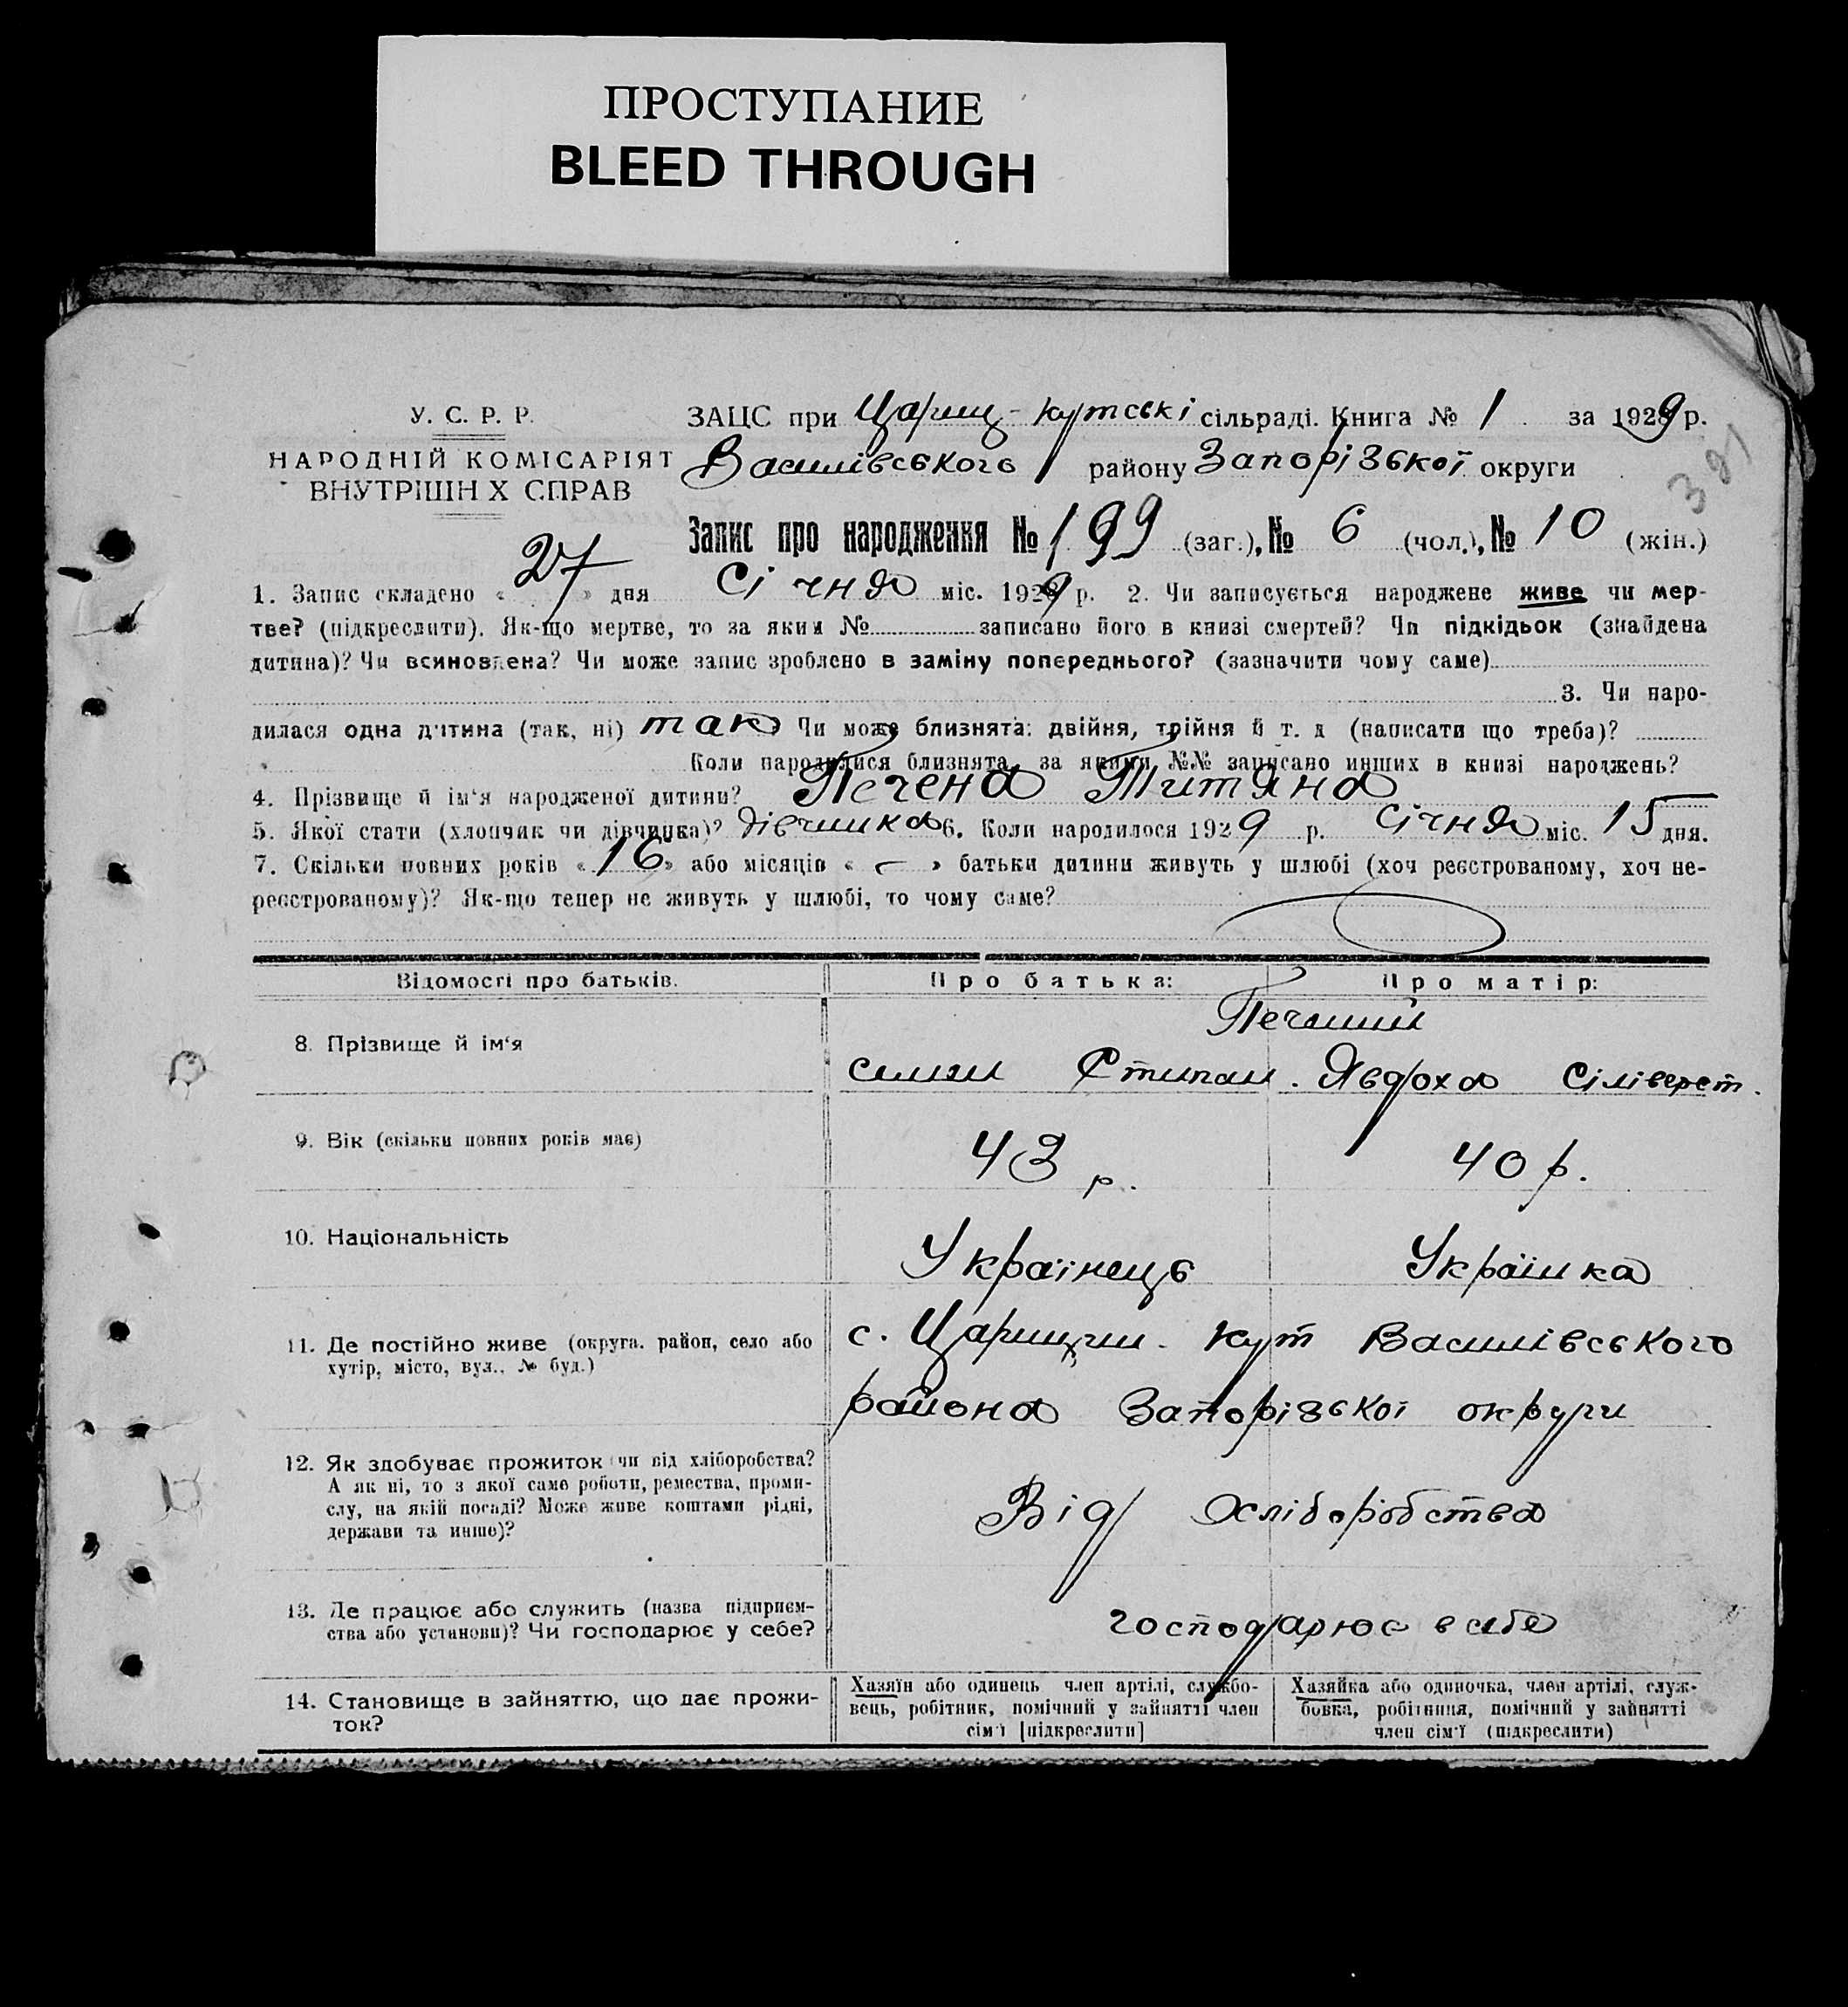 ПРОСТУПАНИЕ
BLEED THROUGH
У. С. Р. Р.
НАРОДНІЙ КОМІСАРІЯТ
ВНУТРІШН Х СПРАВ
ЗАЦС при Цариц-кутські сільраді. Книга № 1 за 1929 р.
Василівського району Запорізької округи
321
Запис про народження № 199 (заг.), № 6 (чол.), № 10 (жін.)
1. Запис складено « 27 » дня Січня міс. 1929 р. 2. Чи записується народжене живе чи мер-
тве? (підкреслити). Як-що мертве, то за яким № записано його в книзі смертей? Чи підкідьок (знайдена
дитина)? Чи всиновлена? Чи може запис зроблено в заміну попереднього? (зазначити чому саме)
3. Чи наро-
дилася одна дитина (так, ні) так Чи може близнята: двійня, трійня й т. д (написати що треба)?
Коли народилися близнята, за якими №№ записано инших в книзі народжень?
4. Прізвище й ім'я народженої дитини? Печена Титяна
5. Якої стати (хлопчик чи дівчинка)? дівчинка 6. Коли народилося 1929 р. Січня міс. 15 дня.
7. Скільки повних років « 16 » або місяців « — » батьки дитини живуть у шлюбі (хоч реєстрованому, хоч не-
реєстрованому)? Як-що тепер не живуть у шлюбі, то чому саме?
Відомості про батьків. Про батька: Про матір:
8. Прізвище й ім'я
Печиний
Степан. Явдоха Сіліверст.
9. Вік (скільки повних років має) 43 р. 40 р.
10. Національність Українець Українка
11. Де постійно живе (округа, район, село або
хутір, місто, вул., № буд.)
с. Царицин. Кут Василівського
района Запорізької округи
12. Як здобуває прожиток (чи від хліборобства?
А як ні, то з якої саме роботи, ремества, проми-
слу, на якій посаді? Може живе коштами рідні,
держави та инше)?
Від хліборобства
13. Де працює або служить (назва підприєм-
ства або установи)? Чи господарює у себе?
господарює в себе
14. Становище в зайняттю, що дає прожи-
ток?
Хазяїн або одинець член артілі, службо-
вець, робітник, помічний у зайнятті член
сім'ї [підкреслити]
Хазяйка або одиночка, член артілі, служ-
бовка, робітниця, помічний у зайнятті
член сім'ї (підкреслити)